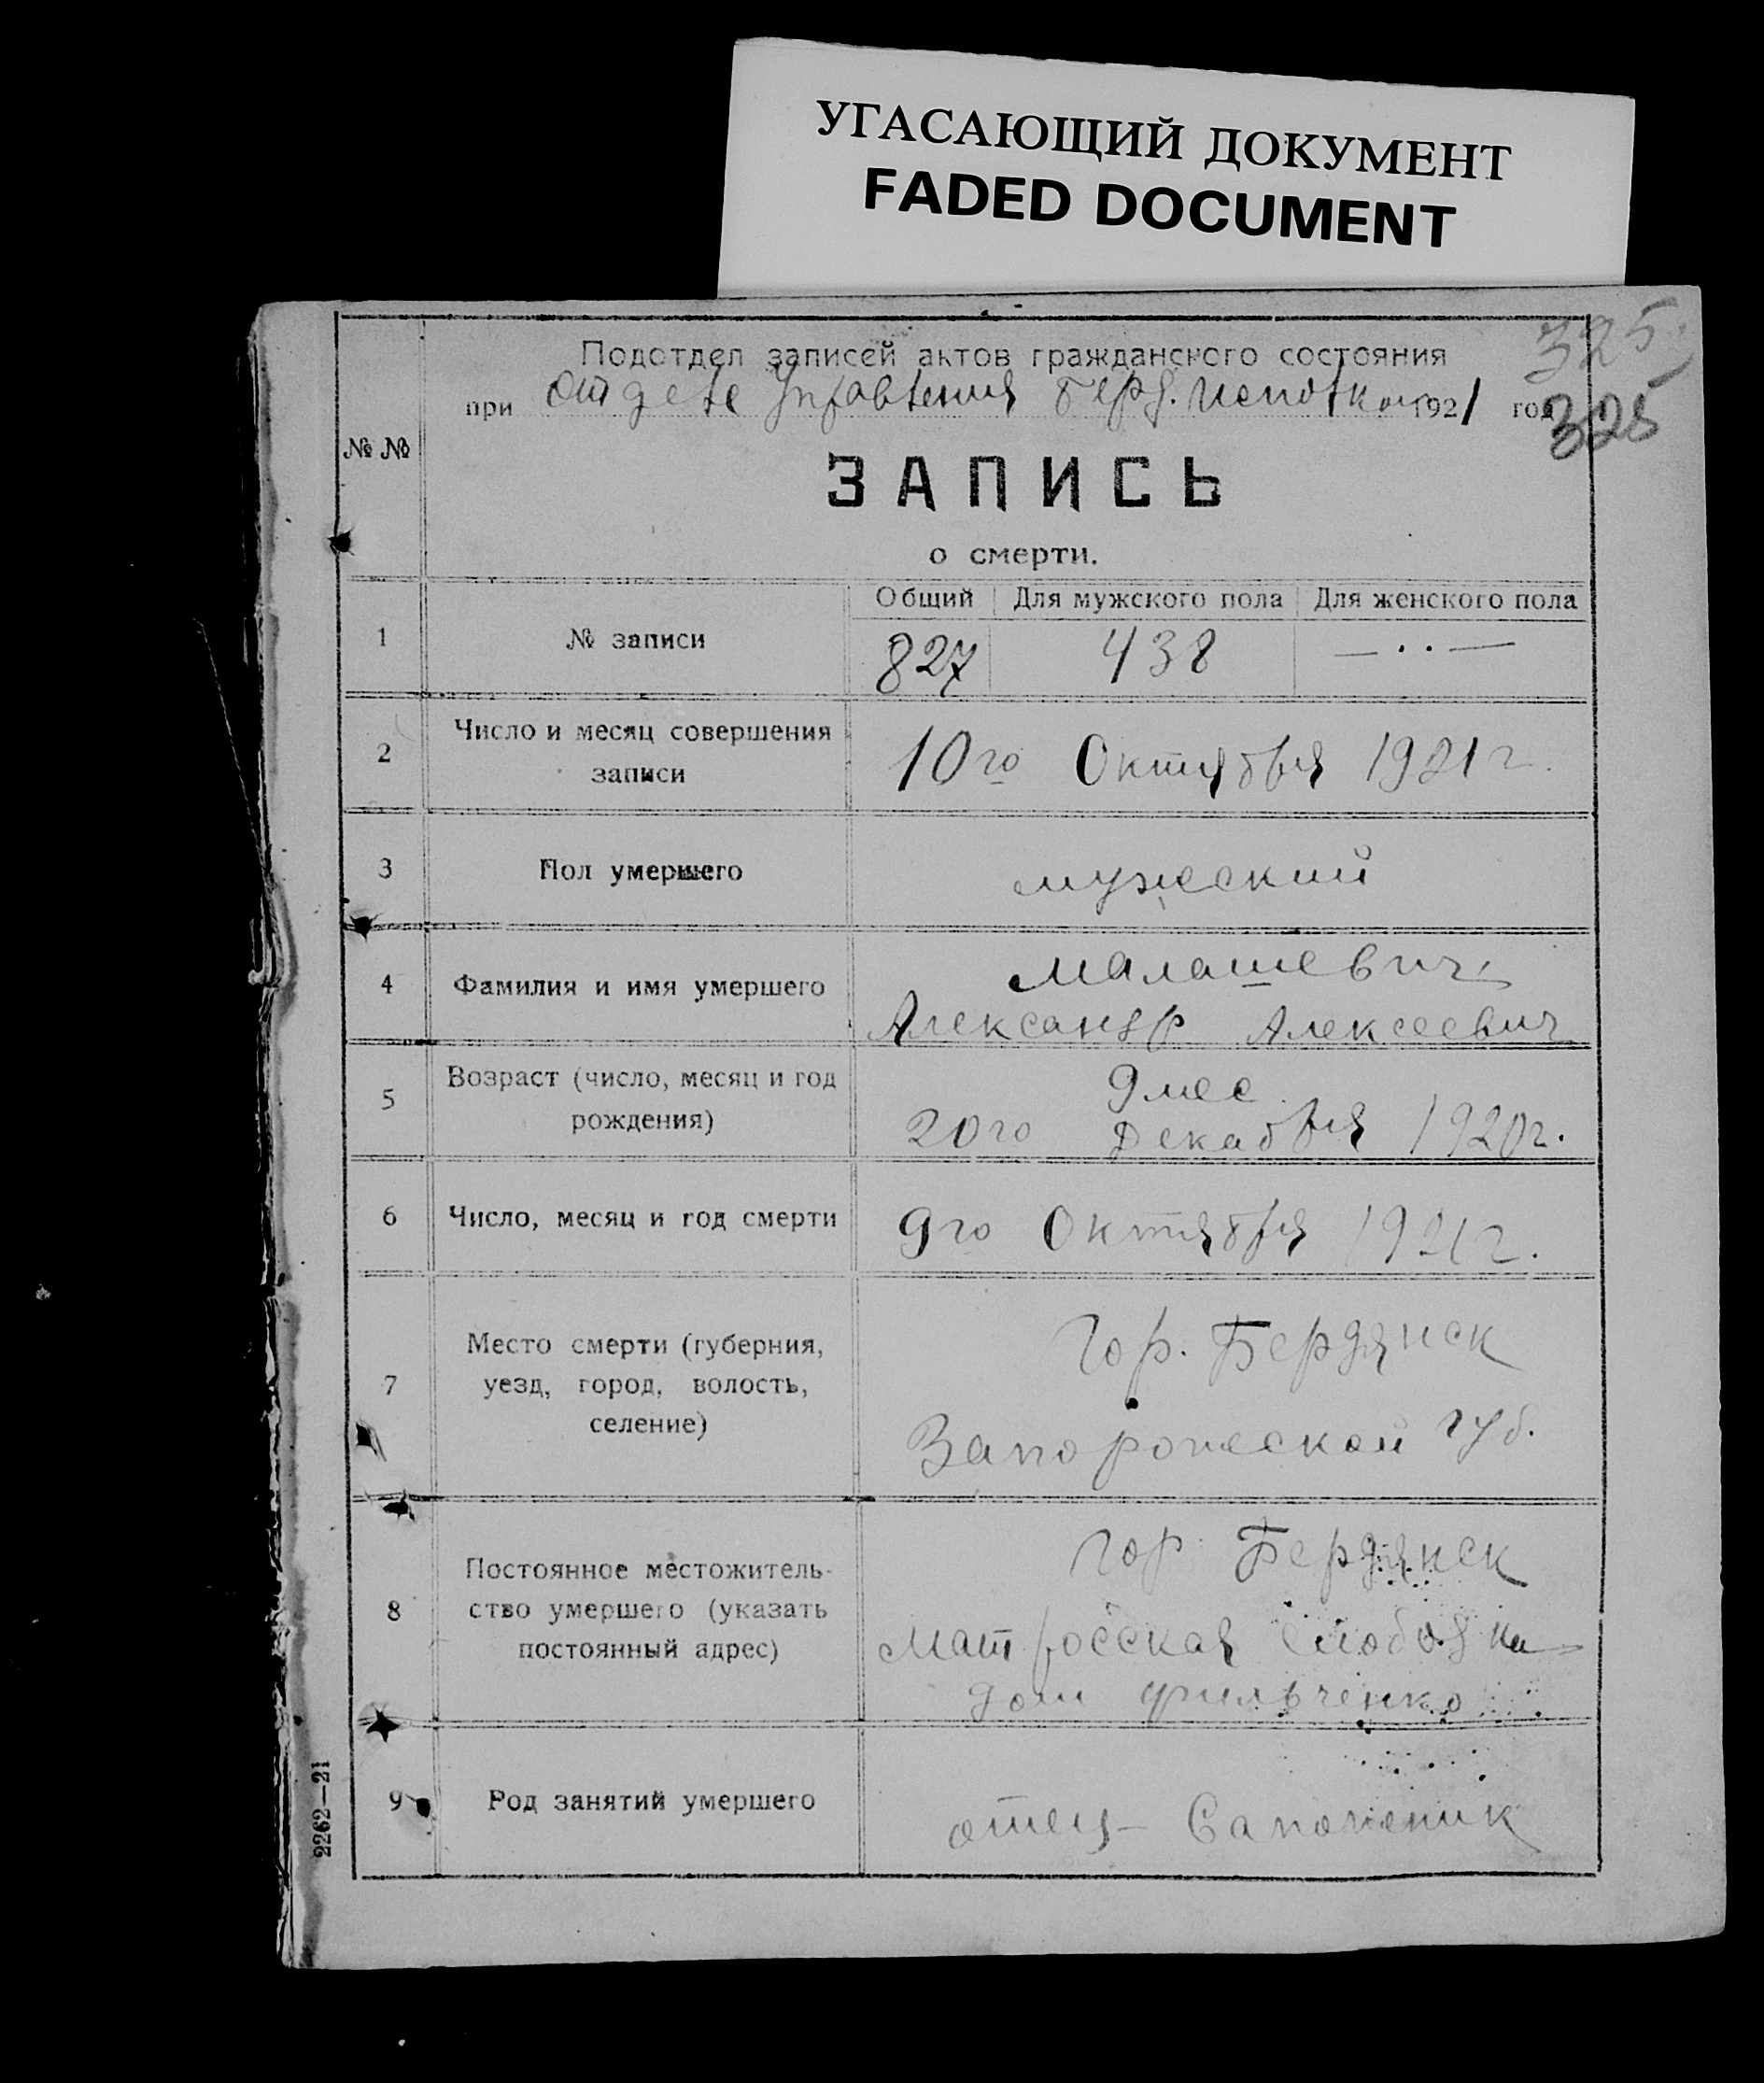 УГАСАЮЩИЙ ДОКУМЕНТ
FADED DOCUMENT
325
Подотдел записей актов гражданского состояния
при отделе Управления Берд. Исполком 1921 год
328
№ №
ЗАПИСЬ
о смерти.
Общий Для мужского пола Для женского пола
1 № записи 827 438 — · · —
2 Число и месяц совершения
записи
10го Октября 1921 г.
3 Пол умершего мужеский
4 Фамилия и имя умершего
Малашевич
Александр Алексеевич
5 Возраст (число, месяц и год
рождения)
9 мес.
20го Декабря 1920 г.
6 Число, месяц и год смерти 9го Октября 1921 г.
7 Место смерти (губерния,
уезд, город, волость,
селение)
Гор. Бердянск
Запорожской губ.
8 Постоянное местожитель-
ство умершего (указать
постоянный адрес)
гор. Бердянск
Матросская Слободка
дом Фильченко
9 Род занятий умершего отец — Сапожник
2262—21